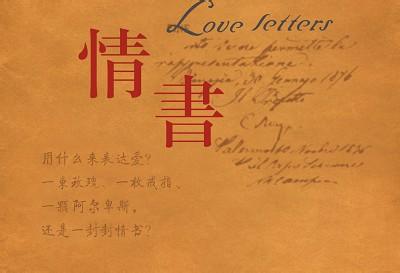 Love letters
情
書
rappresentazione.
Venezia, 30 Gennajo 1876
Il Prefetto
用什么来表达爱？
一束玫瑰、一枚戒指、
一颗阿尔卑斯，
还是一封封情书？